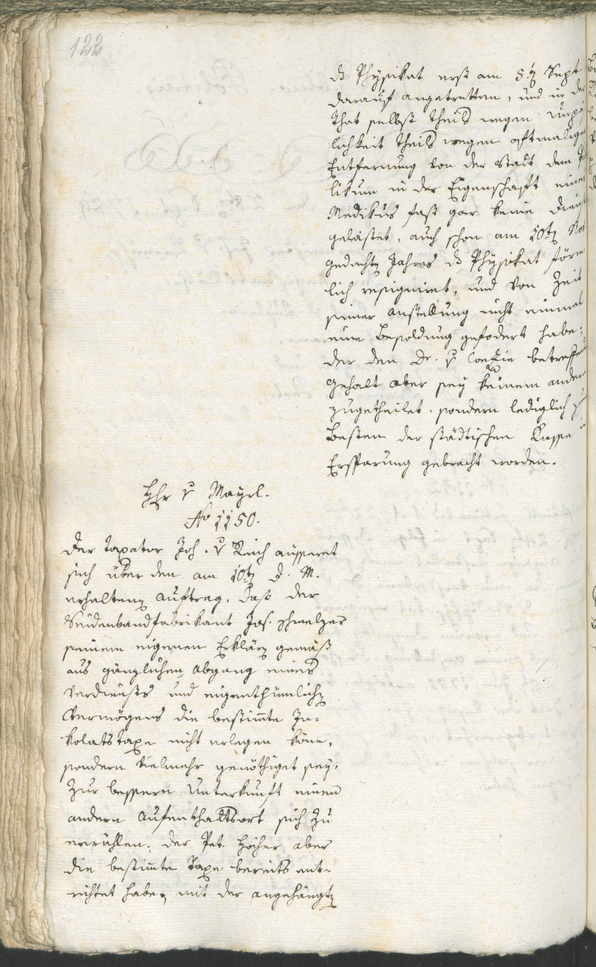 122
ds Physikat erst am 5ten Sept.
darauf angetretten, und in der
That selbst theils wegen
lichkeit theils wegen oftmaliger
Entfernung von der Stadt dem P
likum in der Eigenschaft eines
Medikus fast gar keine Dienst
geleistet, auch schon am 10ten Nov
gedachten Jahres ds Physikat förm
lich resigniret, und von Zeit
seiner Anstellung nicht einmal
eine Besoldung gefodert habe;
der den Dr. v betreffen
Gehalt aber sey keinem andern
zugetheilet, sondern lediglich z
Besten der städtischen Kasse in
Ersparung gebracht worden.
Hhr v Mayrl.
No 1150.
Der Taxator Joh. v Reich äusseret
sich über den am 10ten d. M.
erhaltenen Auftrag, daß der
Seidenbandfabrikant Jos. Schmelzer
seinem eigenen Erklären gemäß
aus gänzlichen Abgang eines
Verdiensts und eigenthümlichen
Vermögens die bestimmte In-
kolatstaxe nicht erlegen könne,
sondern vielmehr genöthiget sey,
zur bessern Unterkunft einen
andern Aufenthaltsort sich zu
erwählen, der Jos. Höher aber
die bestimmte Taxe bereits ent-
richtet habe, mit der angehängten